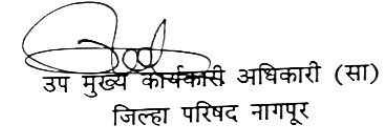 उप मुख्य कार्यकारी अधिकारी (सा)
जिल्हा परिषद नागपूर